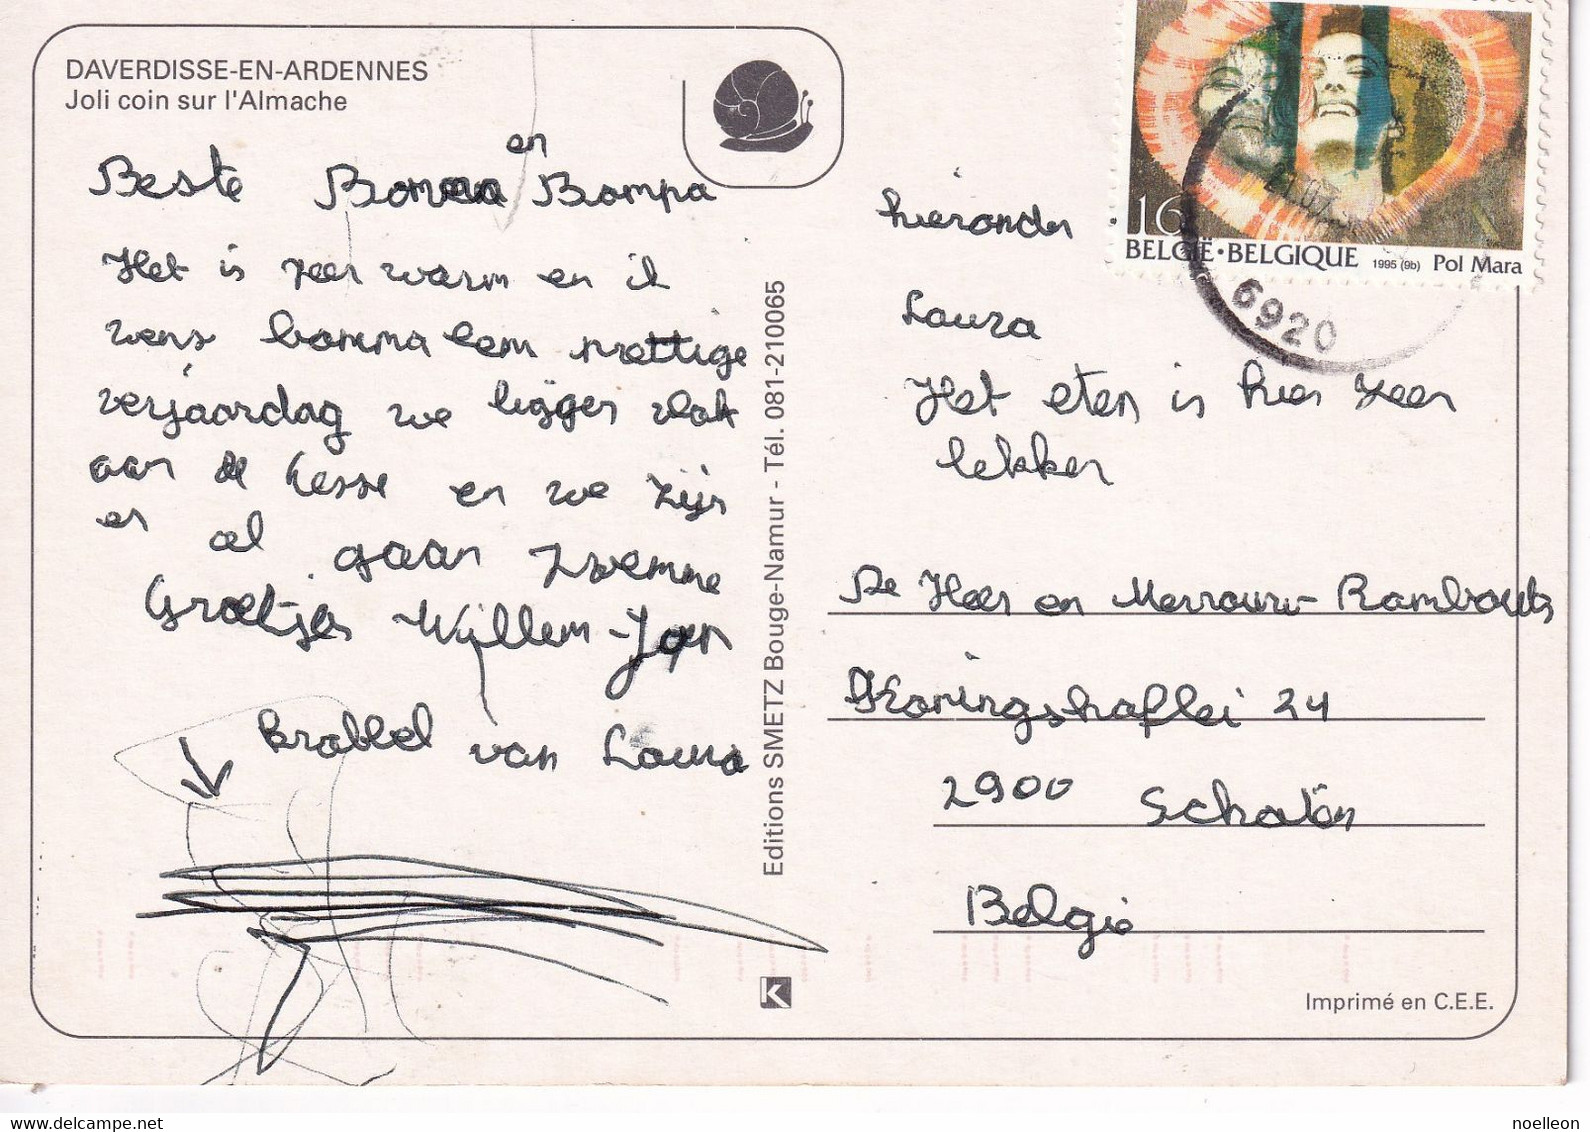 DAVERDISSE-EN-ARDENNES
Joli coin sur l'Almache
en
Beste Bomma Bompa
Het is zeer warm en ik
wens bomma een prettige
verjaardag we liggen vlak
aan de Lesse en we zijn
er al gaan zwemme
Groetjes Willem-Jan
krabbel van Laura
Editions SMETZ Bouge-Namur - Tél. 081-210065
hieronder
Laura
Het eten is hier zeer
lekker
16
BELGIË·BELGIQUE 1995 (9b) Pol Mara
6920
De Heer en Mevrouw Rombouts
Koningshoflei 24
2900 Schoten
Belgie
K
Imprimé en C.E.E.
www.delcampe.net
noelleon